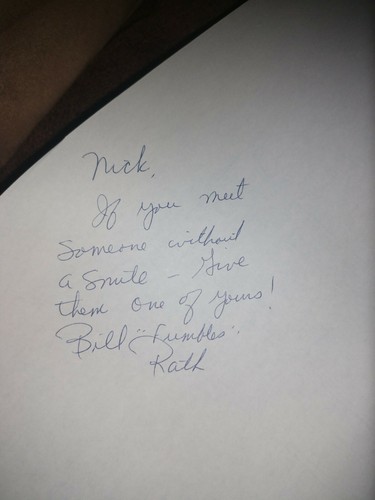 Nick,
If you meet
Someone without
a Smile - Give
them one of yours!
Bill "Fumbles"
Rath